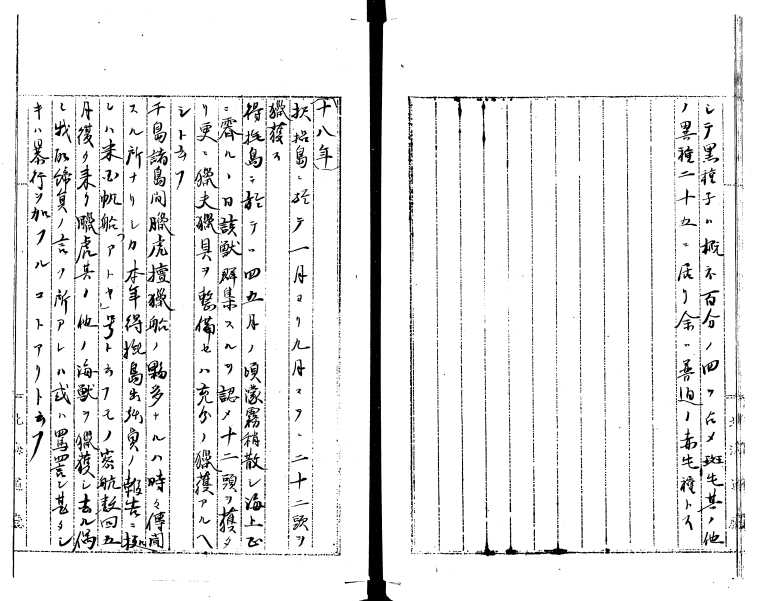 シテ黒種子ハ概子百分ノ四ヲ占メ斑生其ノ他
ノ異種二十五ニ居リ余ハ普通ノ赤生種トス
十八年
択捉島ニ於テ一月ヨリ九月マテニ二十二頭ヲ
猟獲ス
得撫島ニ於テハ四五月ノ頃濛霧稍散シ海上
ニ審ルノ日該獣群集スルヲ認メ十二頭ヲ獲タ
リ更ニ猟夫猟具ヲ整備セハ充分ノ猟獲アルヘ
シト云フ
千島諸島間臘虎擅猟船ノ夥多ナルハ時々傳聞
スル所ナリシカ本年得撫島出張員ノ報告ニ
レハ米国帆船「アトヤ」号ト云フモノ密航数回五
月復タ来リ臘虎其ノ他ノ海獣ヲ猟獲シ去ル偶
シ我派出員ノ言フ所アレハ或ハ罵詈シ甚タシ
キハ暴行ヲ加フルコトアリト云フ